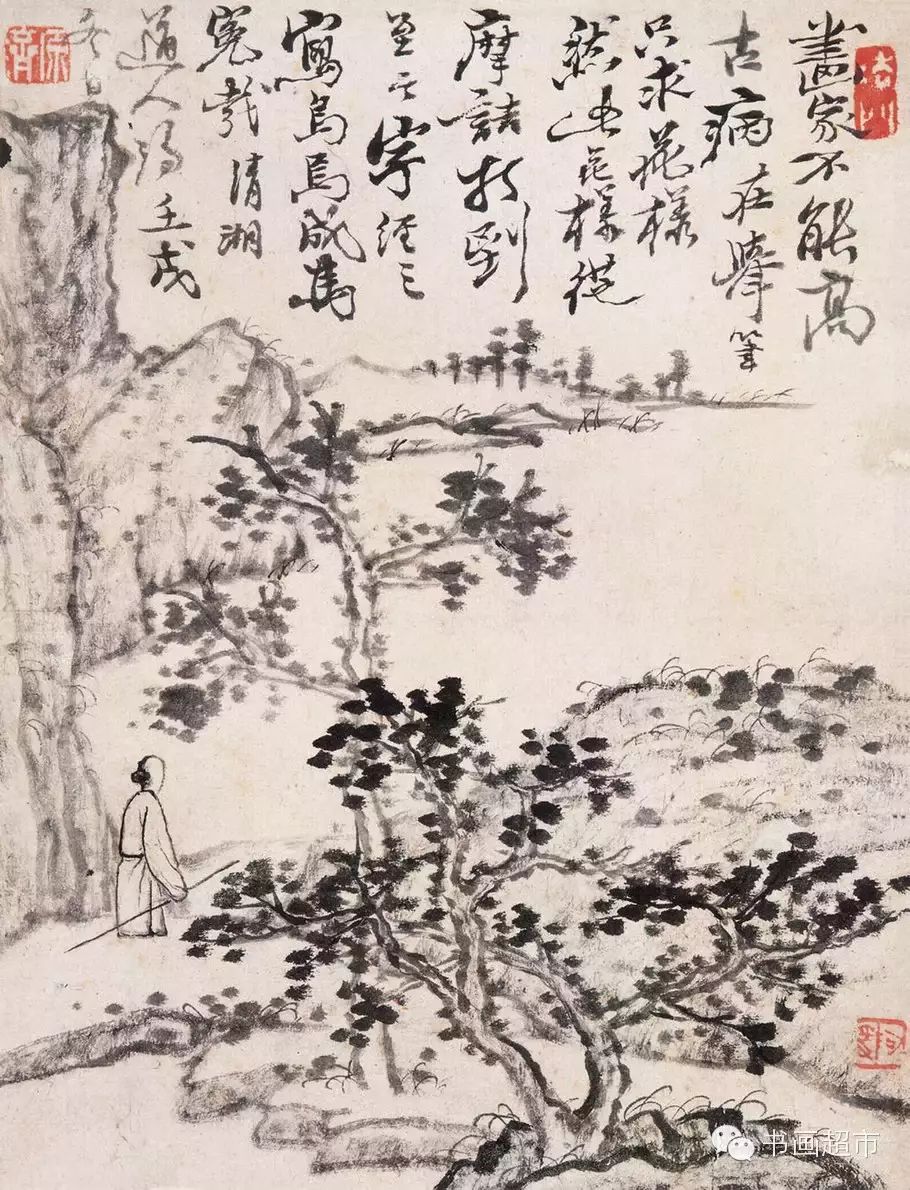 畫家不能高
古病在舉筆
只求花樣
然此花樣從
摩詰打到
至今字經三
寫烏焉成馬
冤哉清湘
道人濟壬戌
冬日
书画超市